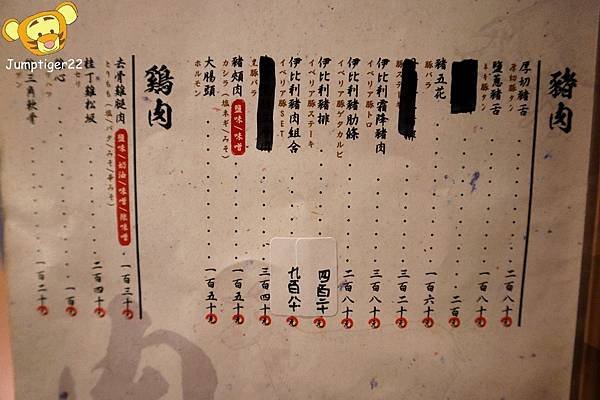 Jumptiger22
豬肉
厚切豬舌 二百八十元
厚切豚タン
鹽蔥豬舌 一百八十元
ネギ豚タン
二百元
豬五花 一百六十元
豚バラ
三百二十元
豚ステーキ
伊比利霜降豬肉 三百八十元
イベリア豚トロ
伊比利豬肋條 二百八十元
イベリア豚ゲタカルビ
伊比利豬排 四百二十元
イベリア豚ステーキ
伊比利豬肉組合 九百八十元
イベリア豚SET
三百四十元
黒豚バラ
豬頰肉 鹽味/味噌 一百五十元
カシラ(塩ネギ/みそ)
大腸頭 一百五十元
ホルモン
鶏肉
去骨雞腿肉 鹽味/奶油/味噌/辣味噌 一百三十元
とりもも(塩/バタ/みそ/辛みそ)
桂丁雞松坂 二百四十元
セセリ
心 一百元
ハツ
三角軟骨 一百二十元